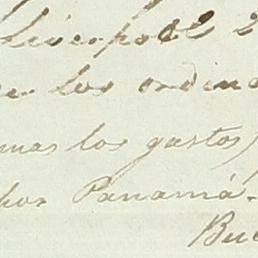 Liverpool 2
los ordina
mas los gastos)
por Panamá.
Bue